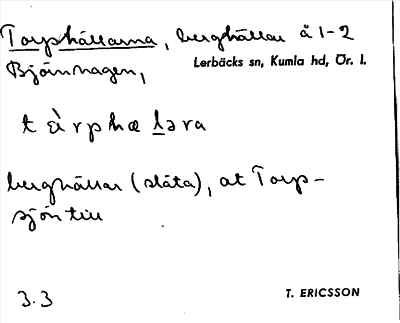 Torphällarna, berghällar å 1-2
Björnhagen,
Lerbäcks sn, Kumla hd, Ör. l.
berghällar (släta), at Torp-
sjön till
3.3
T. ERICSSON